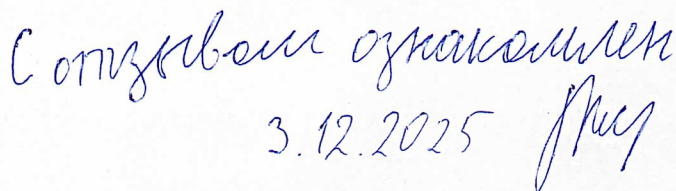 С отзывом ознакомлен
3.12.2025